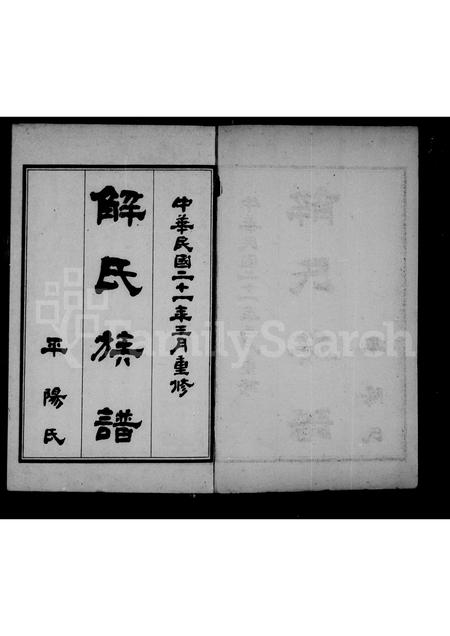 中華民國二十一年三月重修
解氏族譜
平陽氏
FamilySearch